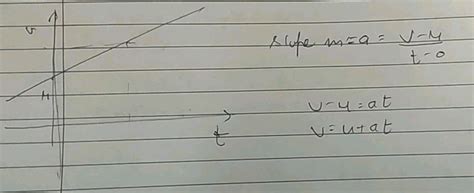 v
u
t
slope m = a = v-u / t-0
v-u = at
v = u+at